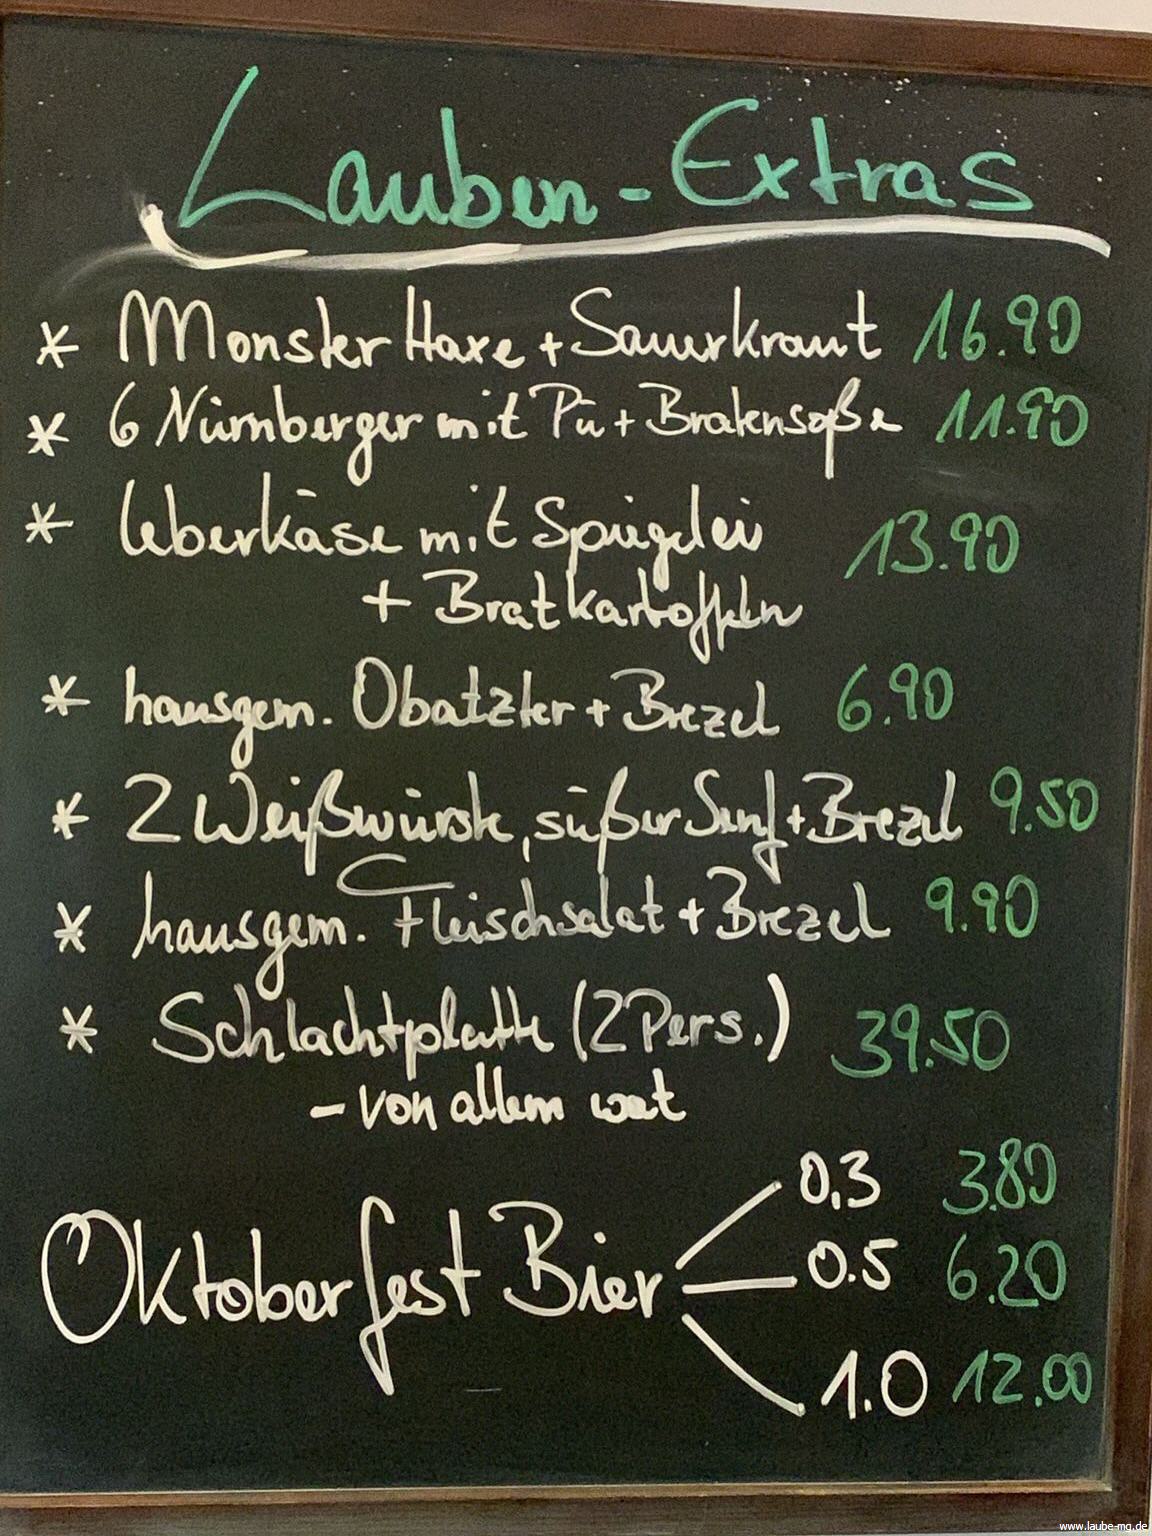 Lauben-Extras
* Monster Haxe + Sauerkraut 16.90
* 6 Nürnberger mit Pü + Bratensoße 11.90
* Leberkäse mit Spiegelei 13.90
+ Bratkartoffeln
* hausgem. Obatzter + Brezel 6.90
* 2 Weißwürste, süßer Senf + Brezel 9.50
* hausgem. Fleischsalat + Brezel 9.90
* Schlachtplatte (2 Pers.) 39.50
- von allem wat
0,3 3.80
Oktoberfest Bier 0.5 6.20
1.0 12.00
www.laube-mg.de